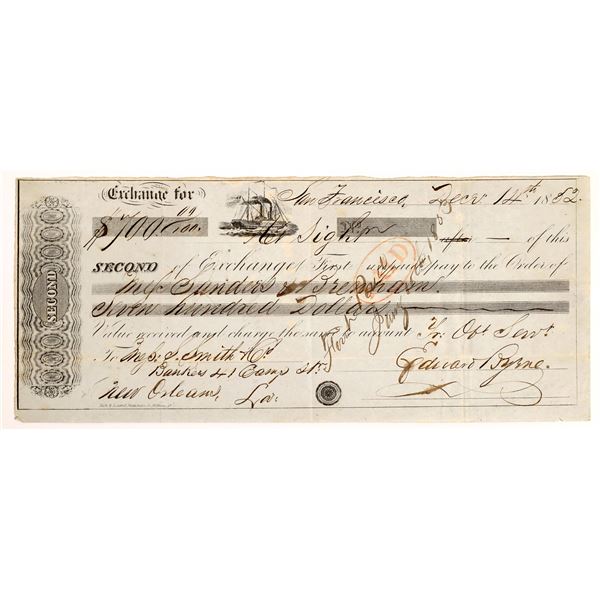 Exchange for San Francisco, Decr 14th 1852
$700 00/100 At Sight after of this
SECOND of Exchange First unpaid pay to the Order of
Messrs Sanders & Brenham.
Seven hundred Dollars
Value received and charge the same to account of Yr Obt Servt
To Messrs Smith & Co Edward Byrne.
Bankers 41 Camp St.
New Orleans, La.
SECOND